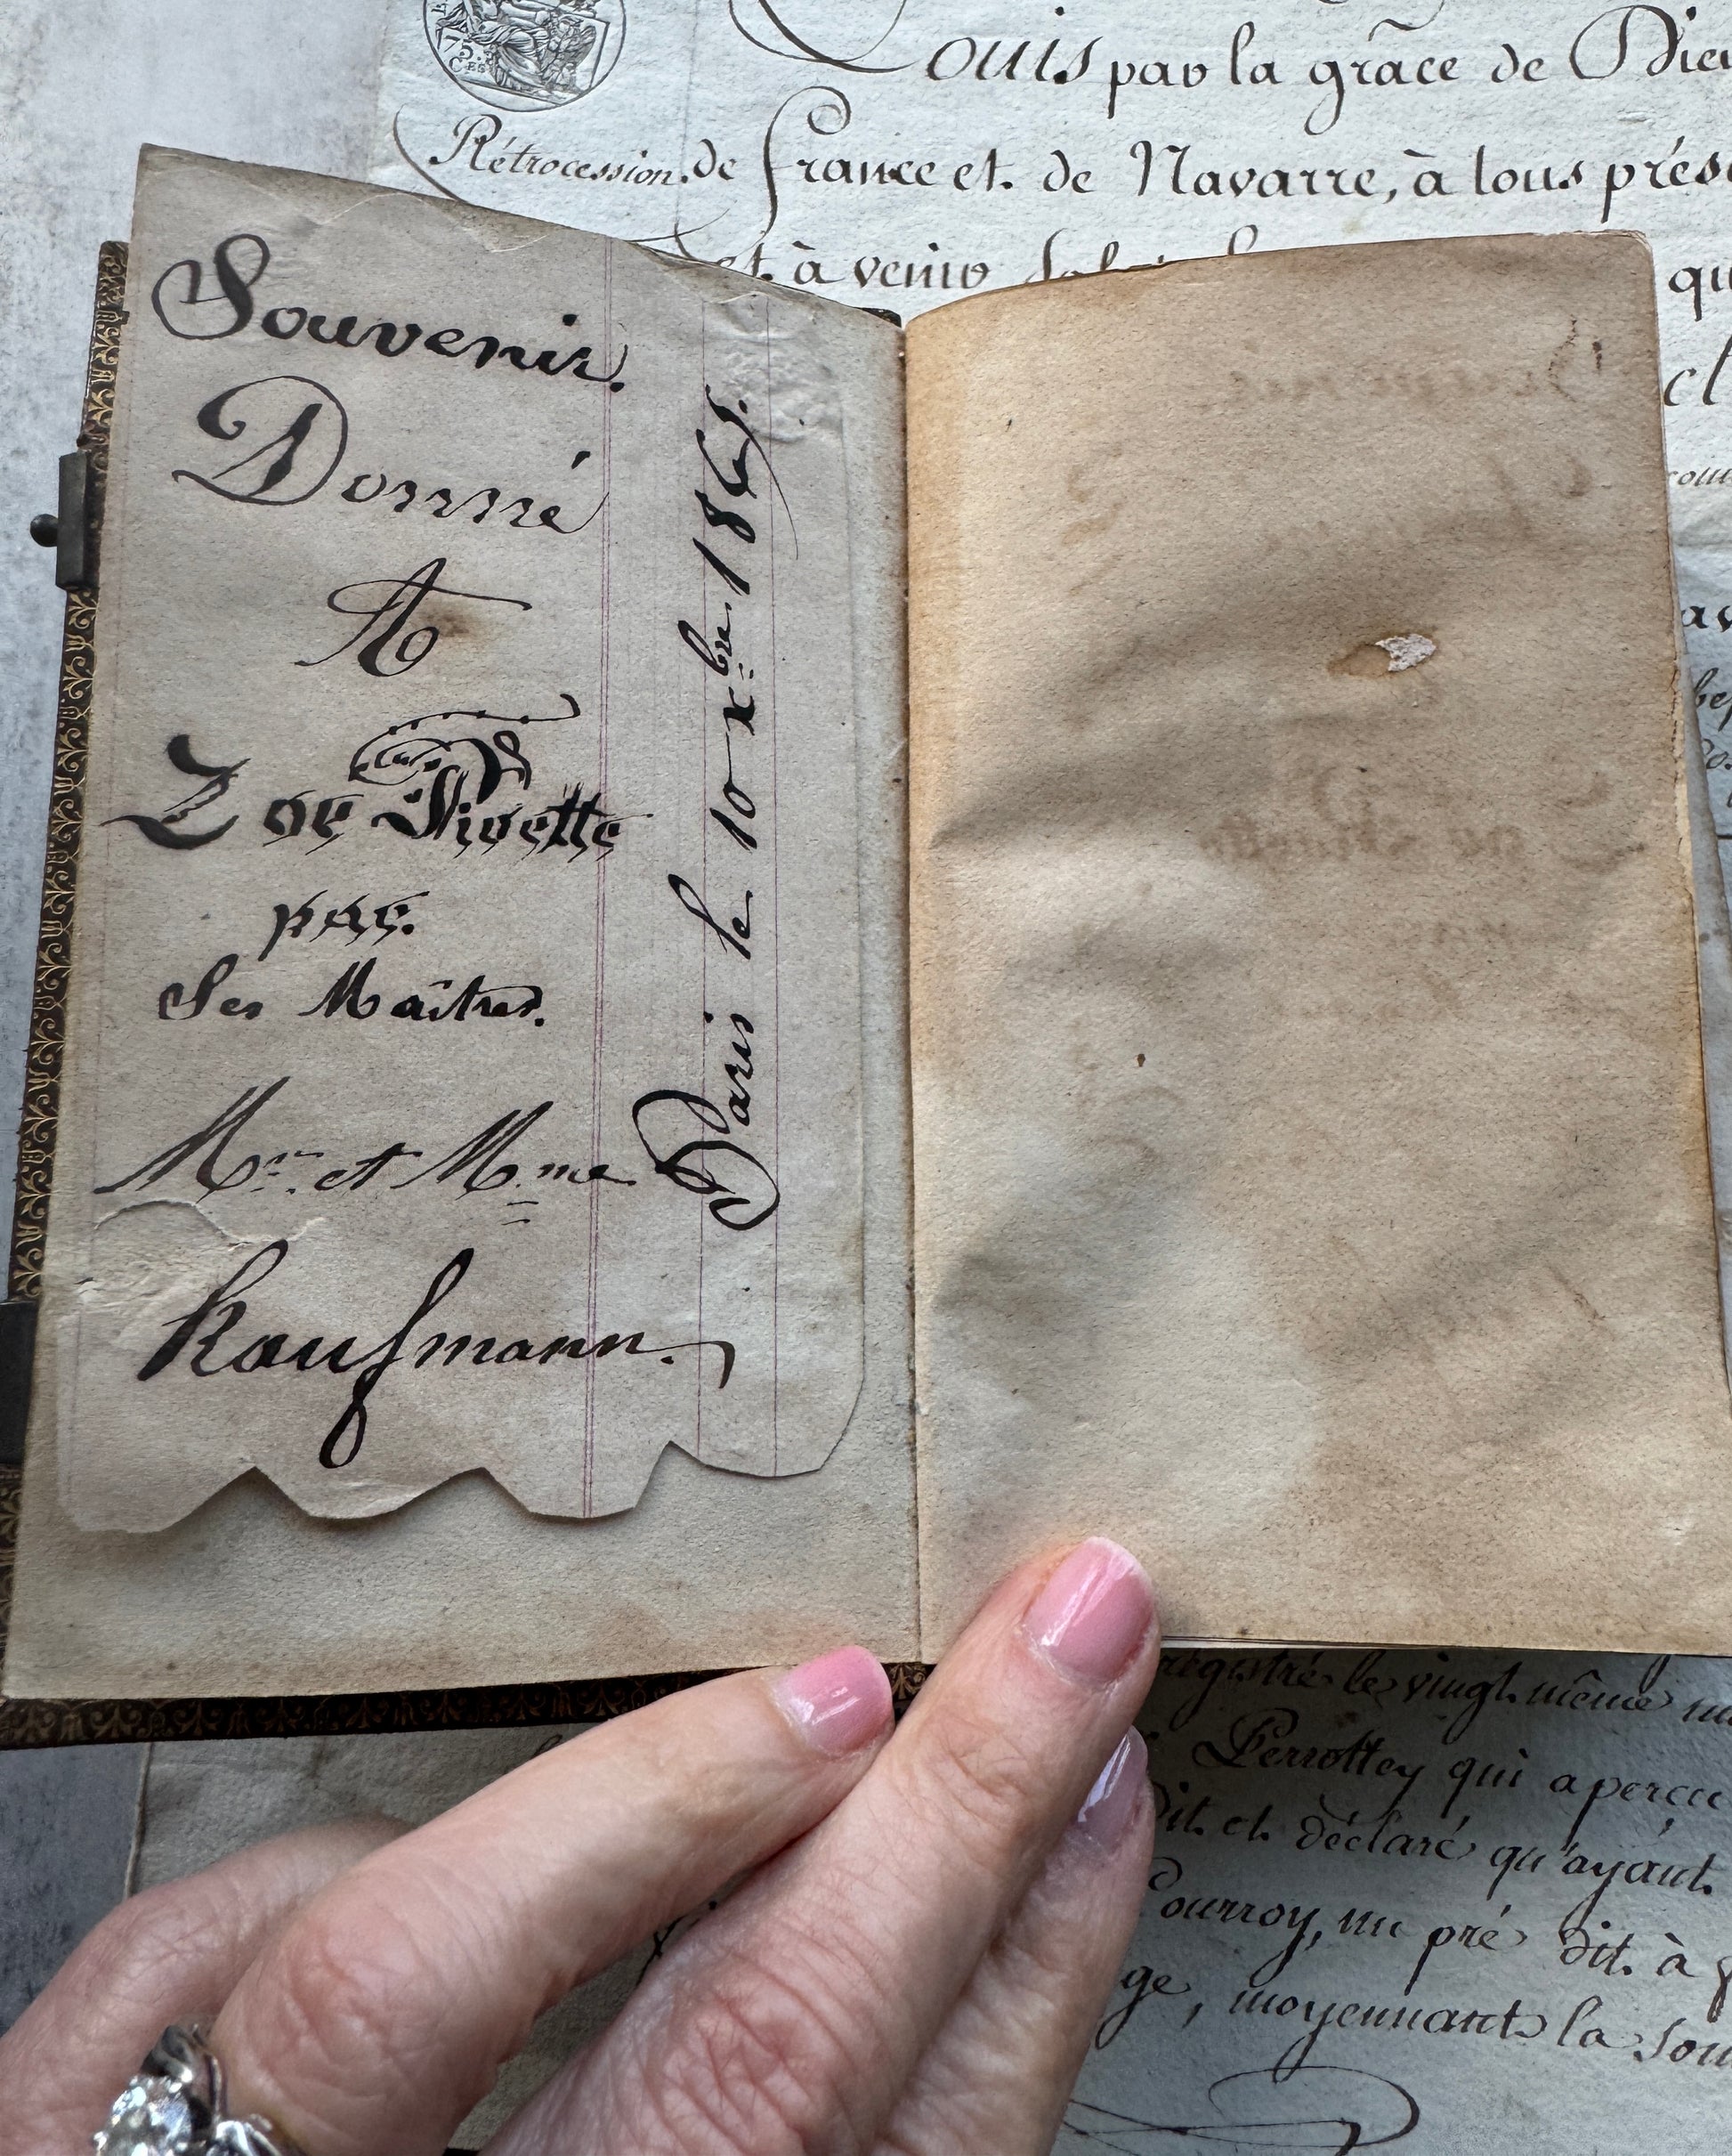 Louis par la grâce de Dieu
Rétrocession. de france et de Navarre, à tous prése
et à venir
qu
Souvenir.
Donné
A
Zoé
par
Ses Maîtres.
Mr. et Mme
Kaufmann.
Paris le 10 xbre 1865.
enregistré le vingt même
Perrottey qui a perçu
dit et déclaré qu'ayant
Pourroy, un pré dit à
ge, moyennant la som